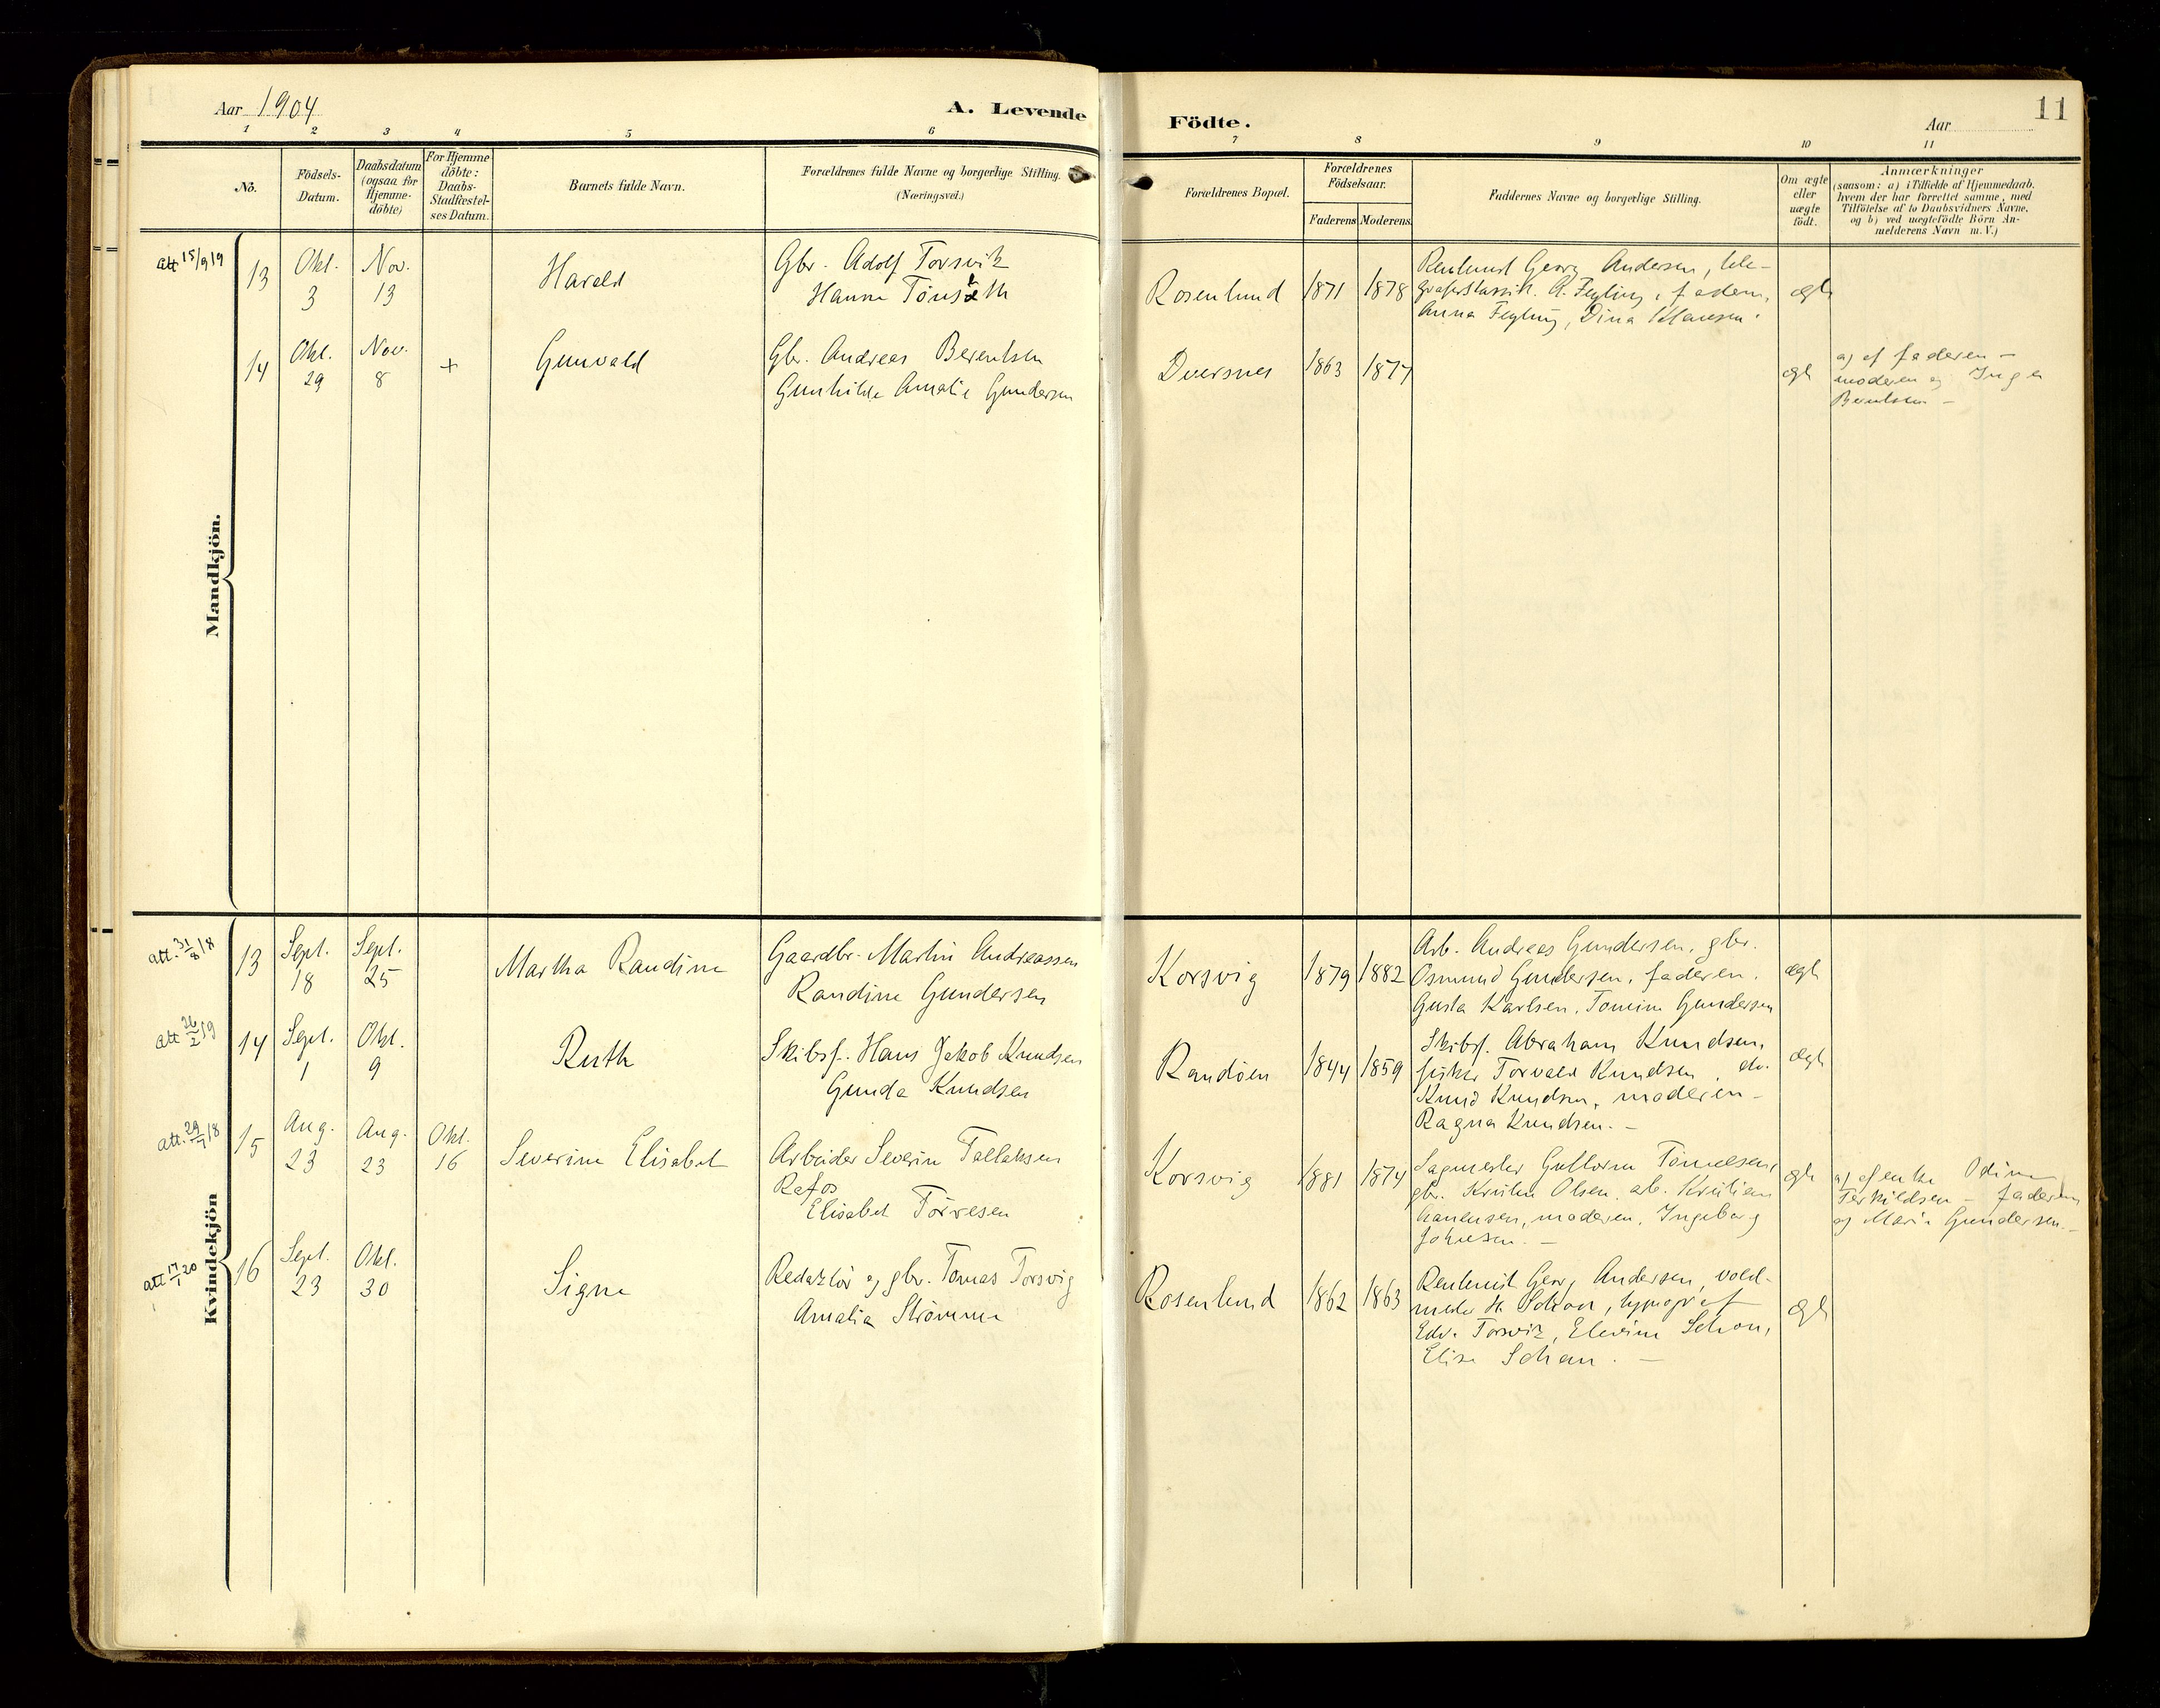 Aar 1904
A. Levende
Födte.
Aar
11
1 2 3 4 5 6 7 8 9 10 11
No.
Födsels-
Datum.
Daabsdatum
(ogsaa for
Hjemme-
döbte)
For Hjemme
döbte:
Daabs-
Stadfæstel-
ses Datum.
Barnets fulde Navn.
Forældrenes fulde Navne og borgerlige Stilling.
(Næringsvei.)
Forældrenes Bopæl.
Forældrenes
Födselsaar.
Faderens Moderens
Faddernes Navne og borgerlige Stilling.
Om ægte
eller
uægte
födt.
Anmærkninger
(saasom: a) i Tilfælde af Hjemmedaab,
hvem der har forrettet samme, med
Tilföielse af to Daabsvidners Navne,
og b) ved uægtefödte Börn An-
melderens Navn m. V.)
Mandkjön.
att 15/9 19
13
Okt.
3
Nov.
13
Harald
Gbr. Adolf Torsvik
Hanna Tönseth
Rosenlund
1871
1878
Rentenist Georg Andersen, tele-
A. Feyling, faderen,
Anna Feyling, Dina Klausen.
ægte
14
Okt.
29
Nov.
8
+
Gunvald
Gbr. Andreas Berentsen
Gunhilde Amalie Gundersen
Dversnes
1863
1877
ægte
a) af faderen –
moderen og Inga
Berentsen –
Kvindekjön
att. 31/8 18
13
Sept.
18
Sept.
25
Martha Randine
Gaardbr. Martin Andreassen
Randine Gundersen
Korsvig
1879
1882
Arb. Andreas Gundersen, gbr.
Osmund Gundersen, faderen,
Gusta Karlsen, Tomine Gundersen
ægte
att 26/2 19
14
Sept.
1
Okt.
9
Ruth
Skibsf. Hans Jakob Knudsen
Gunda Knudsen
Randöen
1844
1859
Skibsf. Abraham Knudsen,
fisker Torvald Knudsen, do.
Knud Knudsen, moderen –
Ragna Knudsen. –
ægte
att. 29/7 18
15
Aug.
23
Aug.
23
Okt.
16
Severine Elisabet
Arbeider Severin Tallaksen
Refos
Elisabet Törresen
Korsvig
1881
1874
Sagmester Guttorm Tönnesen,
gbr. Kristen Olsen, arb. Kristian
moderen, Ingeborg
Johnsen. –
ægte
a) af enke Odine
Terkildsen – faderen
og Marie Gundersen. –
att 17/1 20
16
Sept.
23
Okt.
30
Signe
Redaktör og gbr. Tomas Torsvig
Amalia Strömme
Rosenlund
1862
1863
Rentenist Georg Andersen, vold-
mester H. Schøn, typograf
Edv. Torsvik, Elevine Schøn,
Elise Schøn. –
ægte